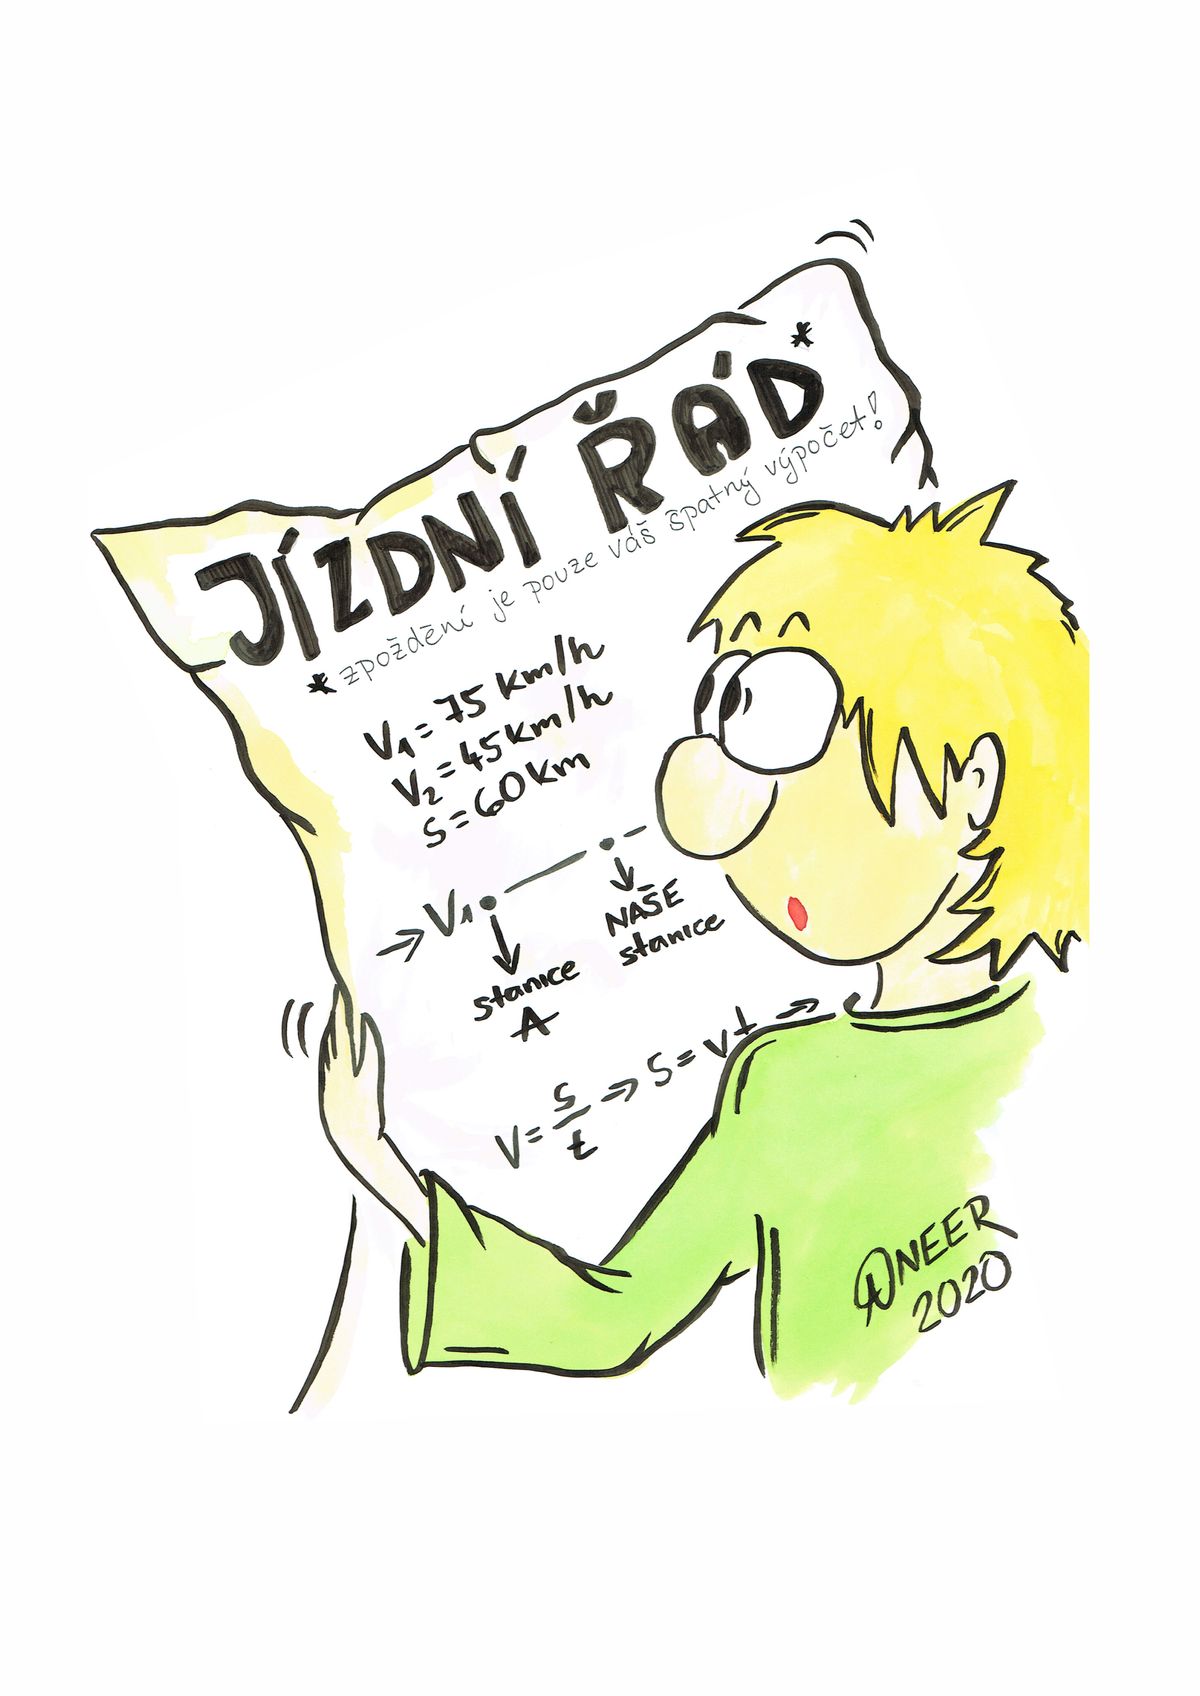 JÍZDNÍ ŘÁD*
*zpoždění je pouze váš špatný výpočet!
V₁ = 75 km/h
V₂ = 45 km/h
S = 60 km
→ V₁
NAŠE
stanice
stanice
A
V = s/t → S = vt →
NEER
2020